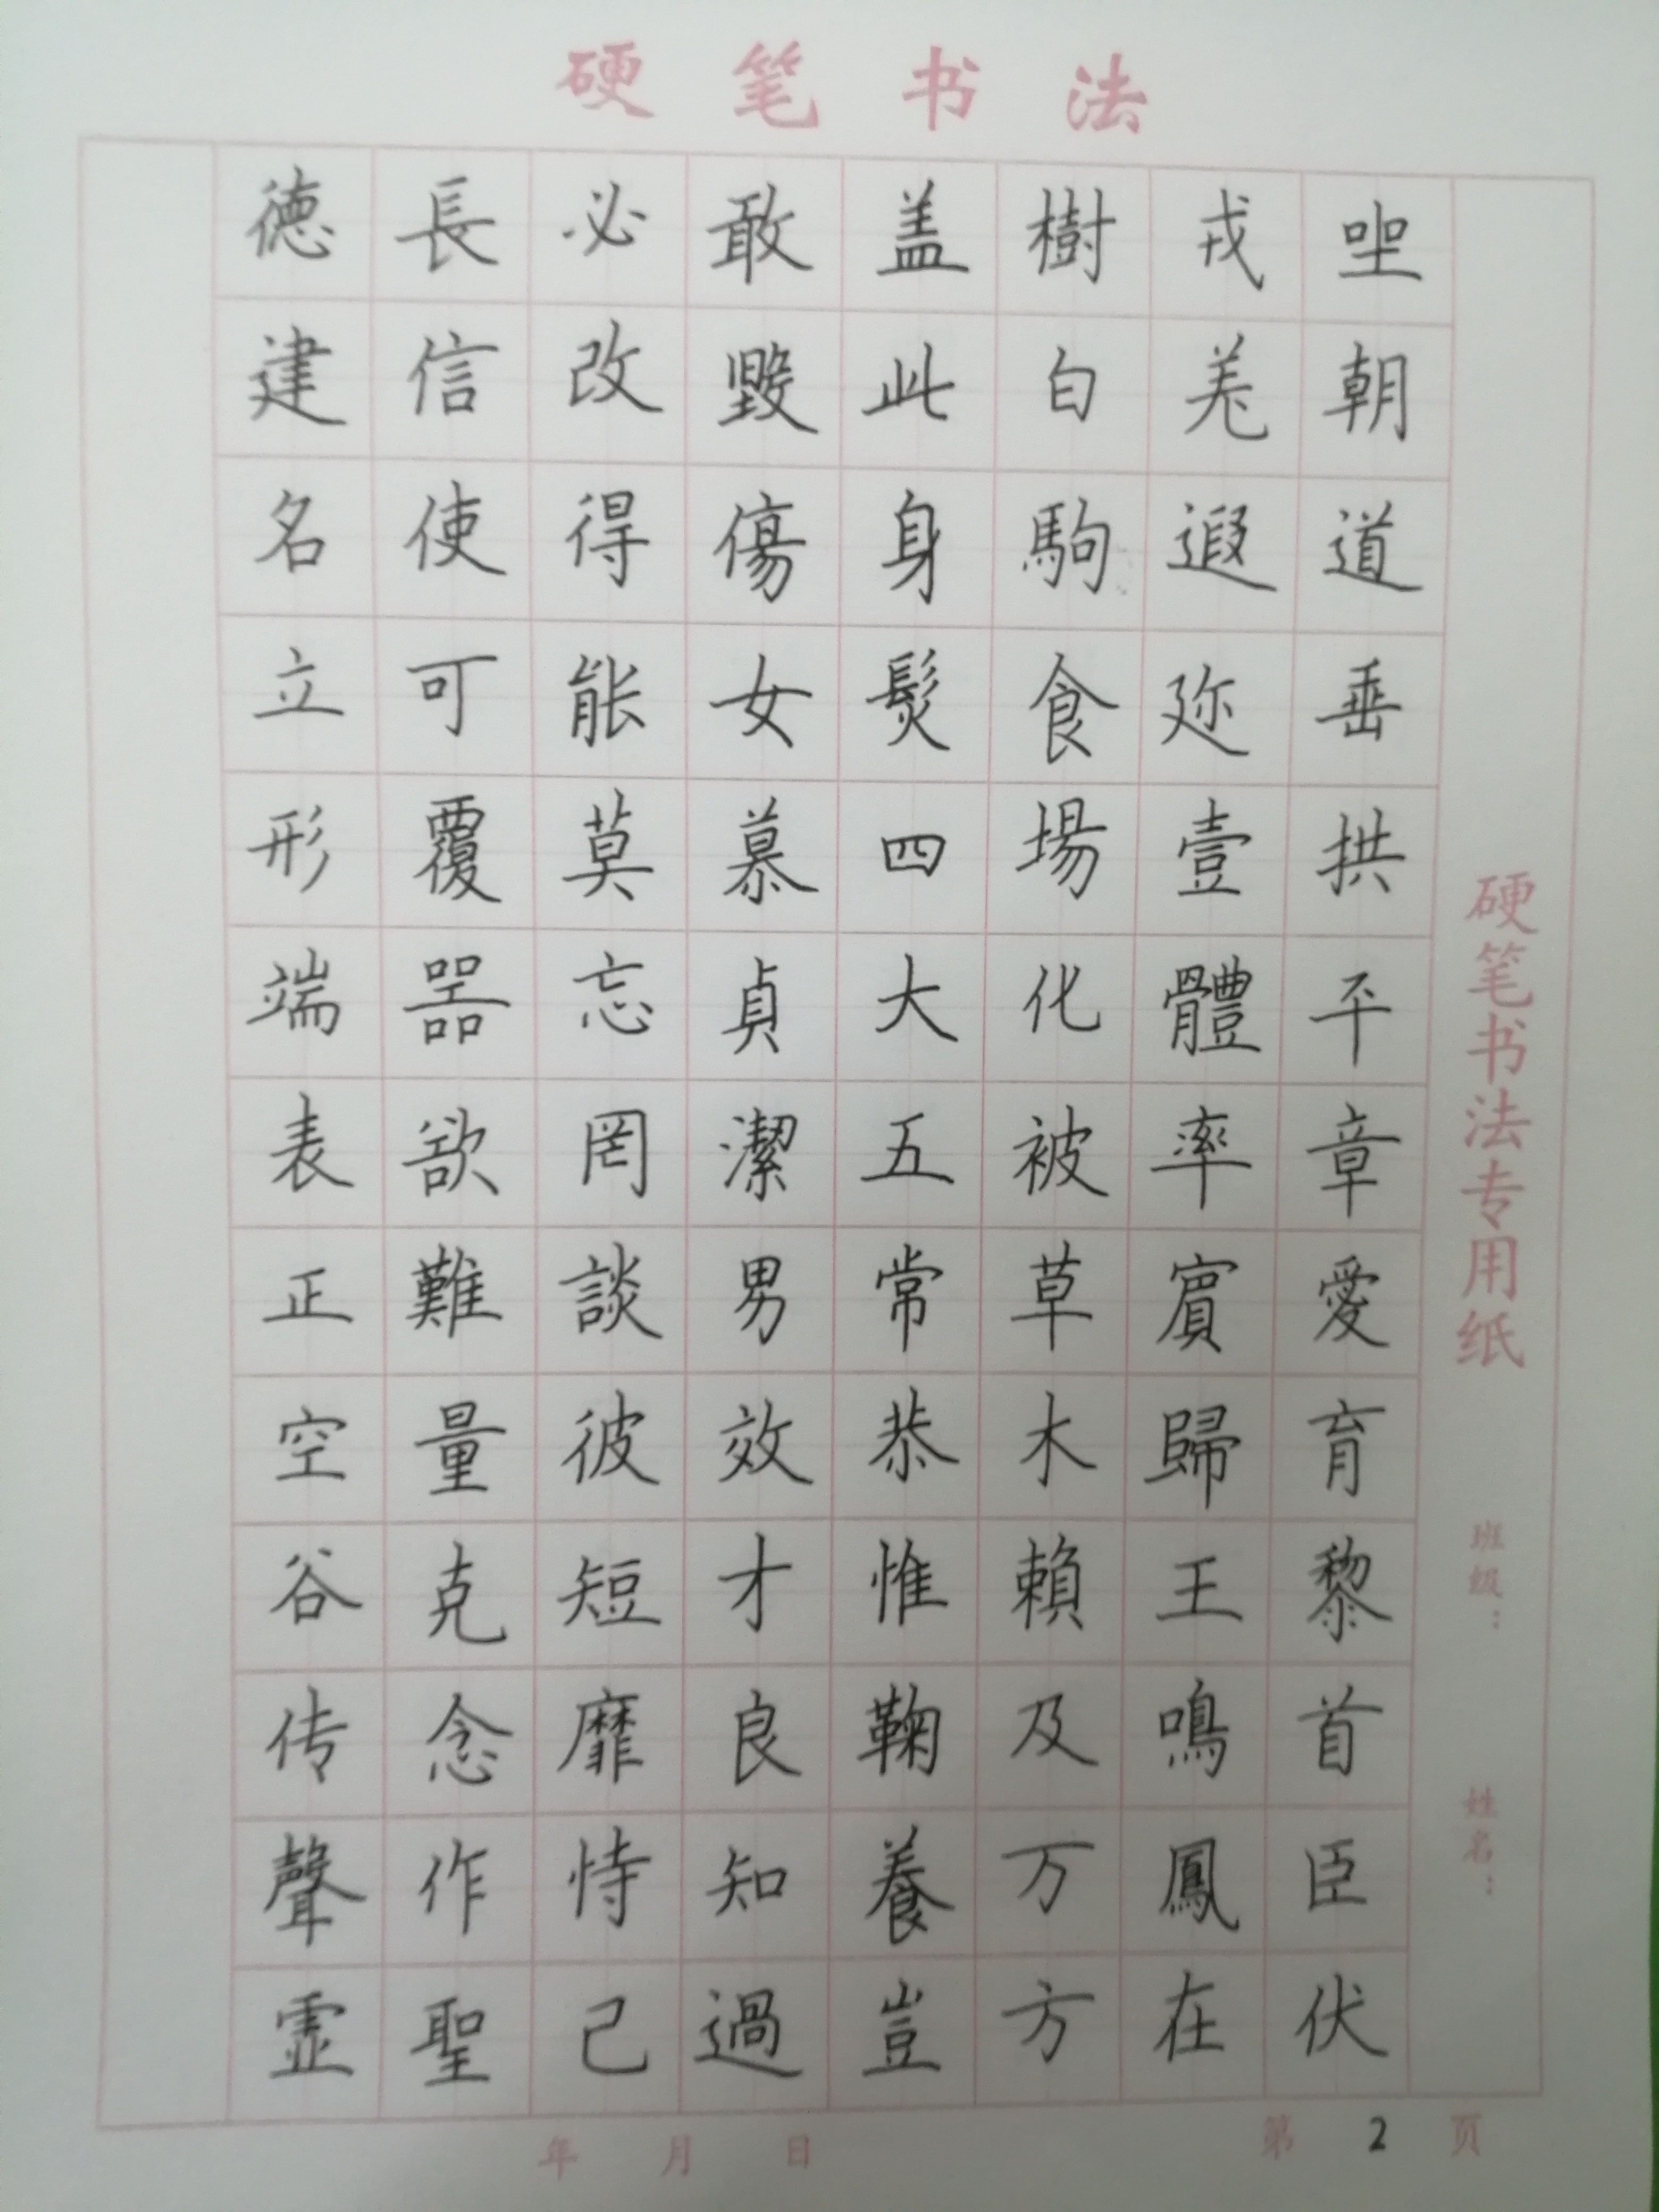 硬笔书法
坐朝道垂拱平章愛育黎首臣伏
戎羌遐迩壹體率賓歸王鳴鳳在
樹白駒食場化被草木賴及万方
盖此身髮四大五常恭惟鞠養豈
敢毀傷女慕貞潔男效才良知過
必改得能莫忘罔談彼短靡恃己
長信使可覆器欲難量克念作聖
德建名立形端表正空谷传聲虚
硬笔书法专用纸
班级：
姓名：
年 月 日
第 2 页